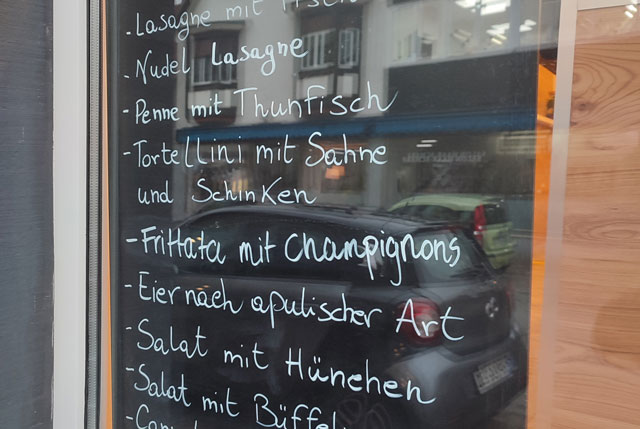 - Lasagne mit
- Nudel Lasagne
- Penne mit Thunfisch
- Tortellini mit Sahne
und Schinken
- Frittata mit Champignons
- Eier nach apulischer Art
- Salat mit Hünchen
- Salat mit